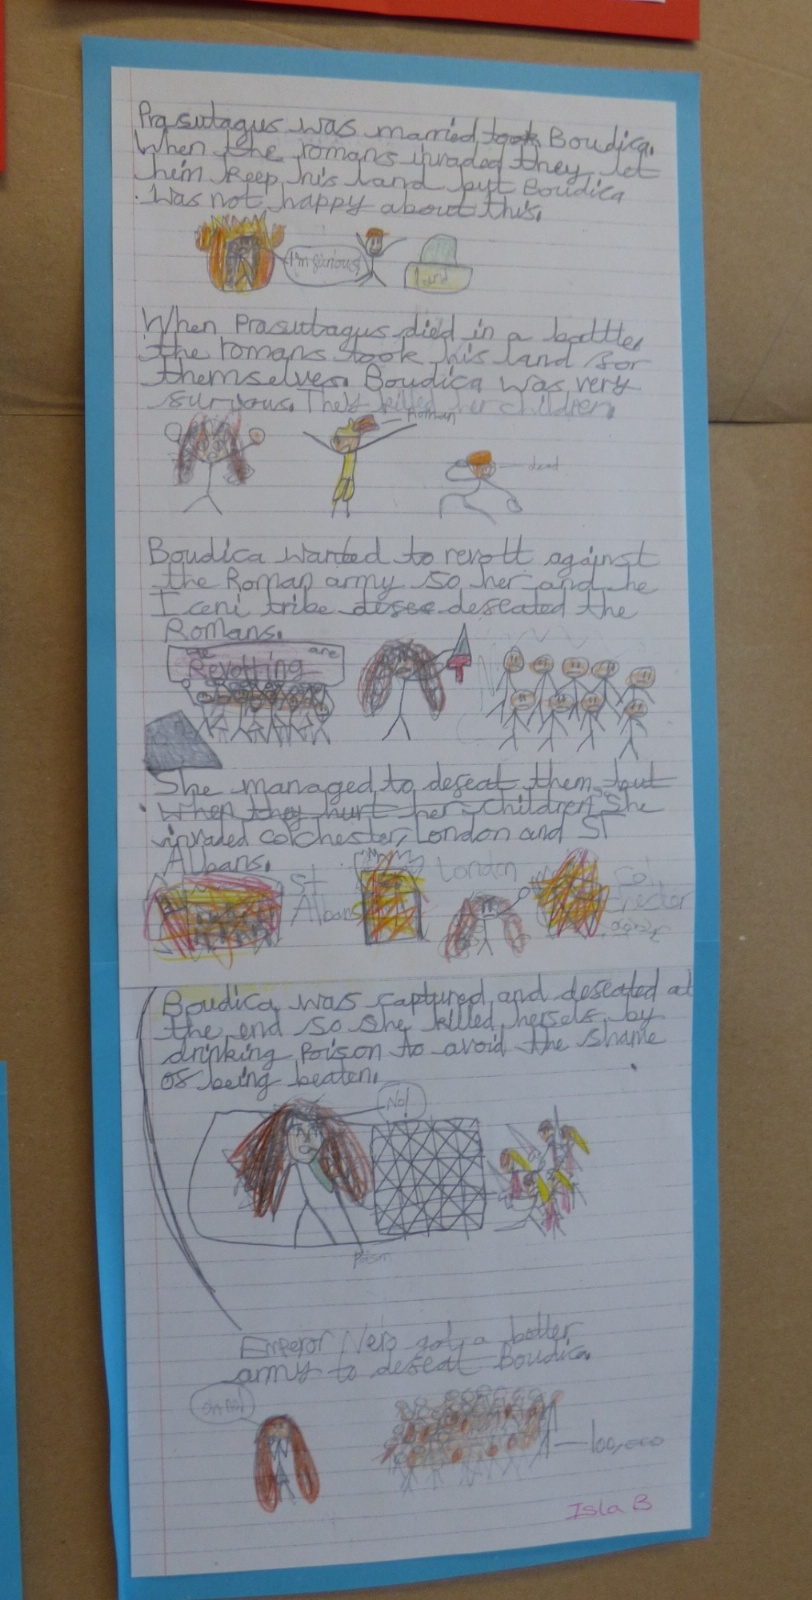 Prasutagus was married took Boudica.
When the romans invaded they let
him keep his land but Boudica
was not happy about this.
I'm furious
land
When Prasutagus died in a battle
the romans took his land for
themselves. Boudica was very
furyous. They killed her children.
Roman
dead
Boudica wanted to revolt against
the Roman army so her and the
Iceni tribe defeated the
Romans.
we are
Revolting
She managed to defeat them but
when they hurt her children She
invaded colchester, London and ST
Albans.
St
Albans
London
Boudica was captured and defeated at
the end so she killed herself by
drinking Poison to avoid the shame
of being beaten.
No!
Poison
Emperor Nero got a better
army to defeat Boudica.
oh no!
100,000
Isla B